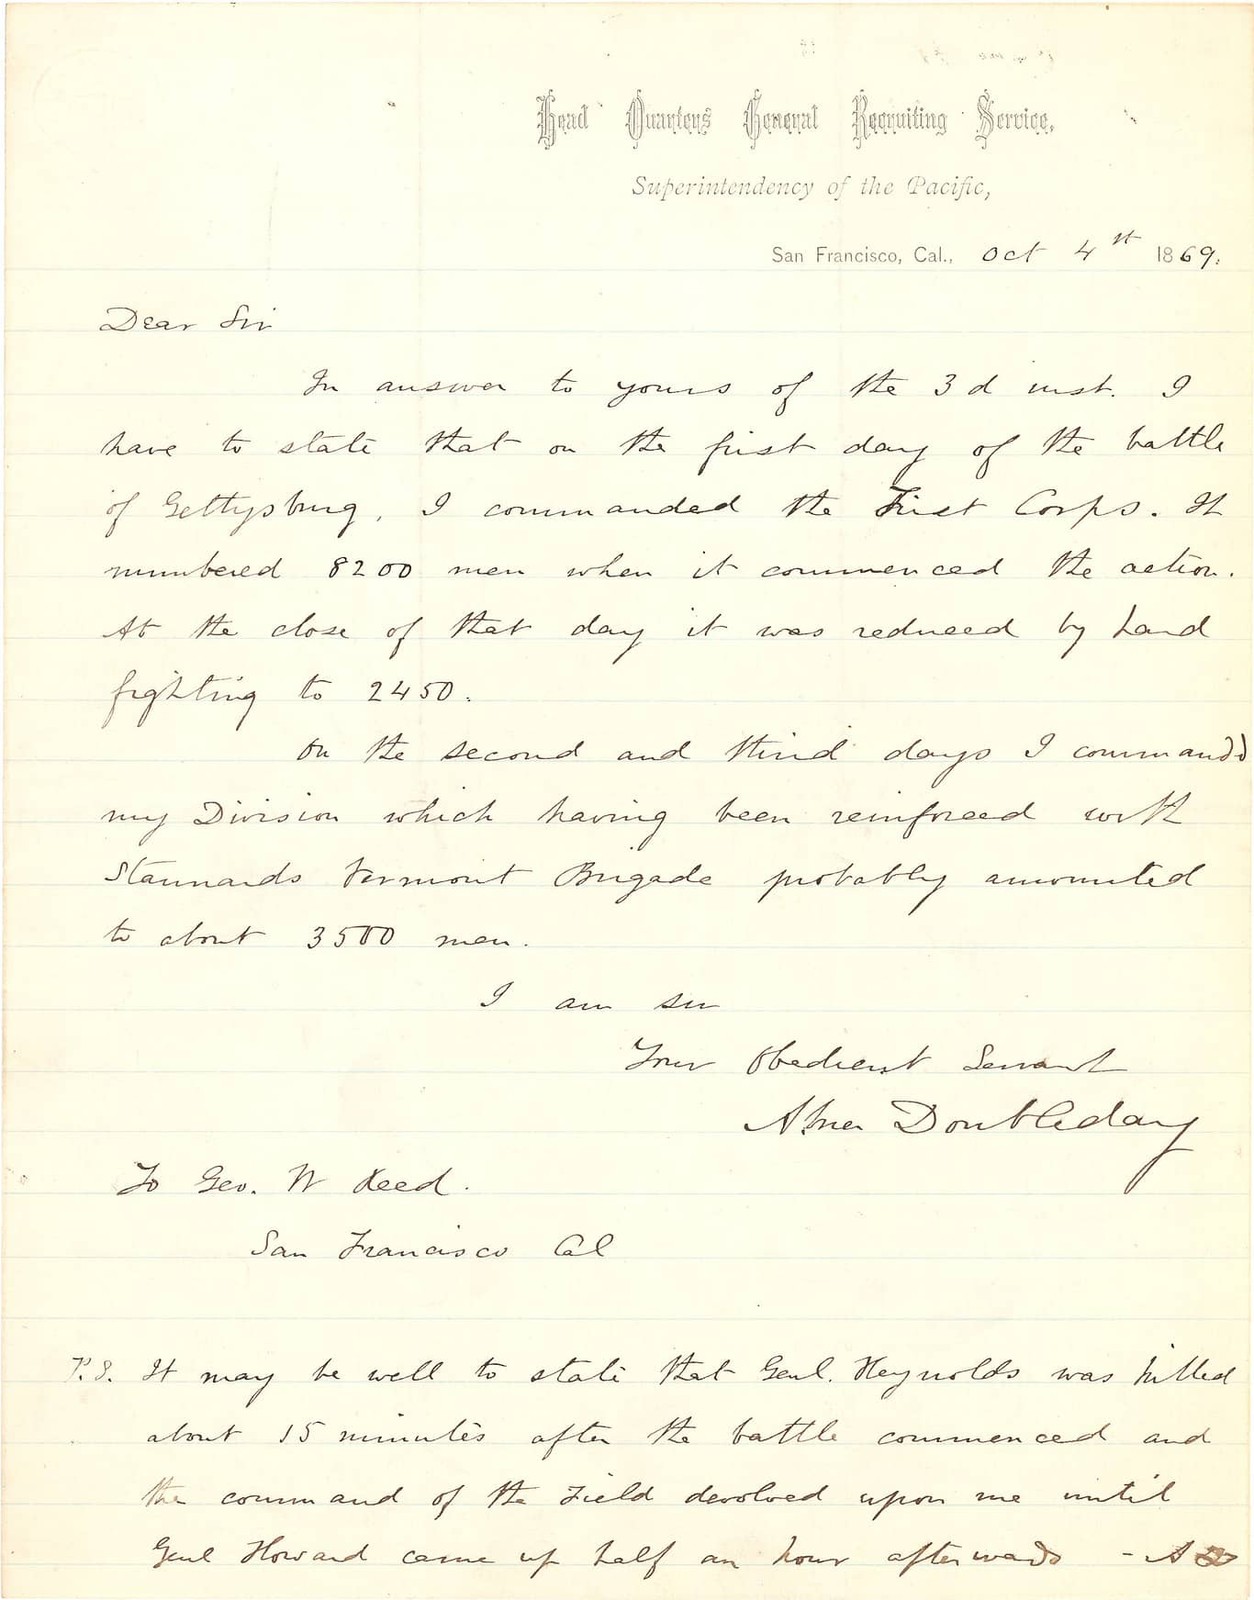 Head Quarters General Recruiting Service,
Superintendency of the Pacific,
San Francisco, Cal., Oct 4st 1869.
Dear Sir
In answer to yours of the 3d inst. I
have to state that on the first day of the battle
of Gettysburg, I commanded the First Corps. It
numbered 8200 men when it commenced the action.
At the close of that day it was reduced by hard
fighting to 2450.
On the second and third days I commandd
my Division which having been reinforced with
Stannards Vermont Brigade probably amounted
to about 3500 men.
I am sir
Your Obedient Servant
Abner Doubleday
To Geo. W Reed.
San Francisco Cal
P.S. It may be well to state that Genl. Reynolds was killed
about 15 minutes after the battle commenced and
the command of the Field devolved upon me until
Genl Howard came up half an hour afterwards - A D